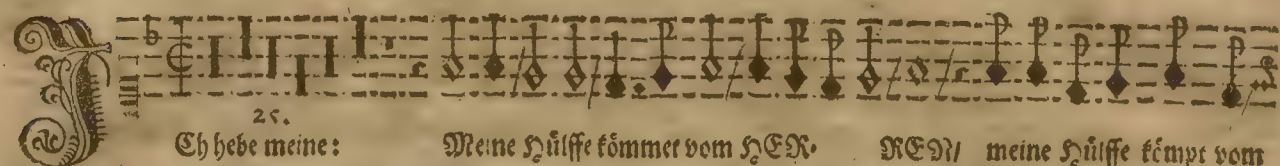 25.
ICh hebe meine: Meine Hülffe kömmet vom HER- REN/ meine Hülffe kömpt vom